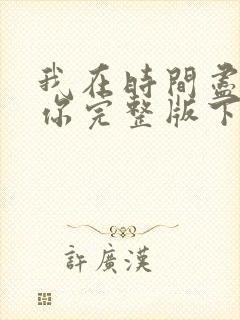 我在時間盡
你完整版下
許廣漢